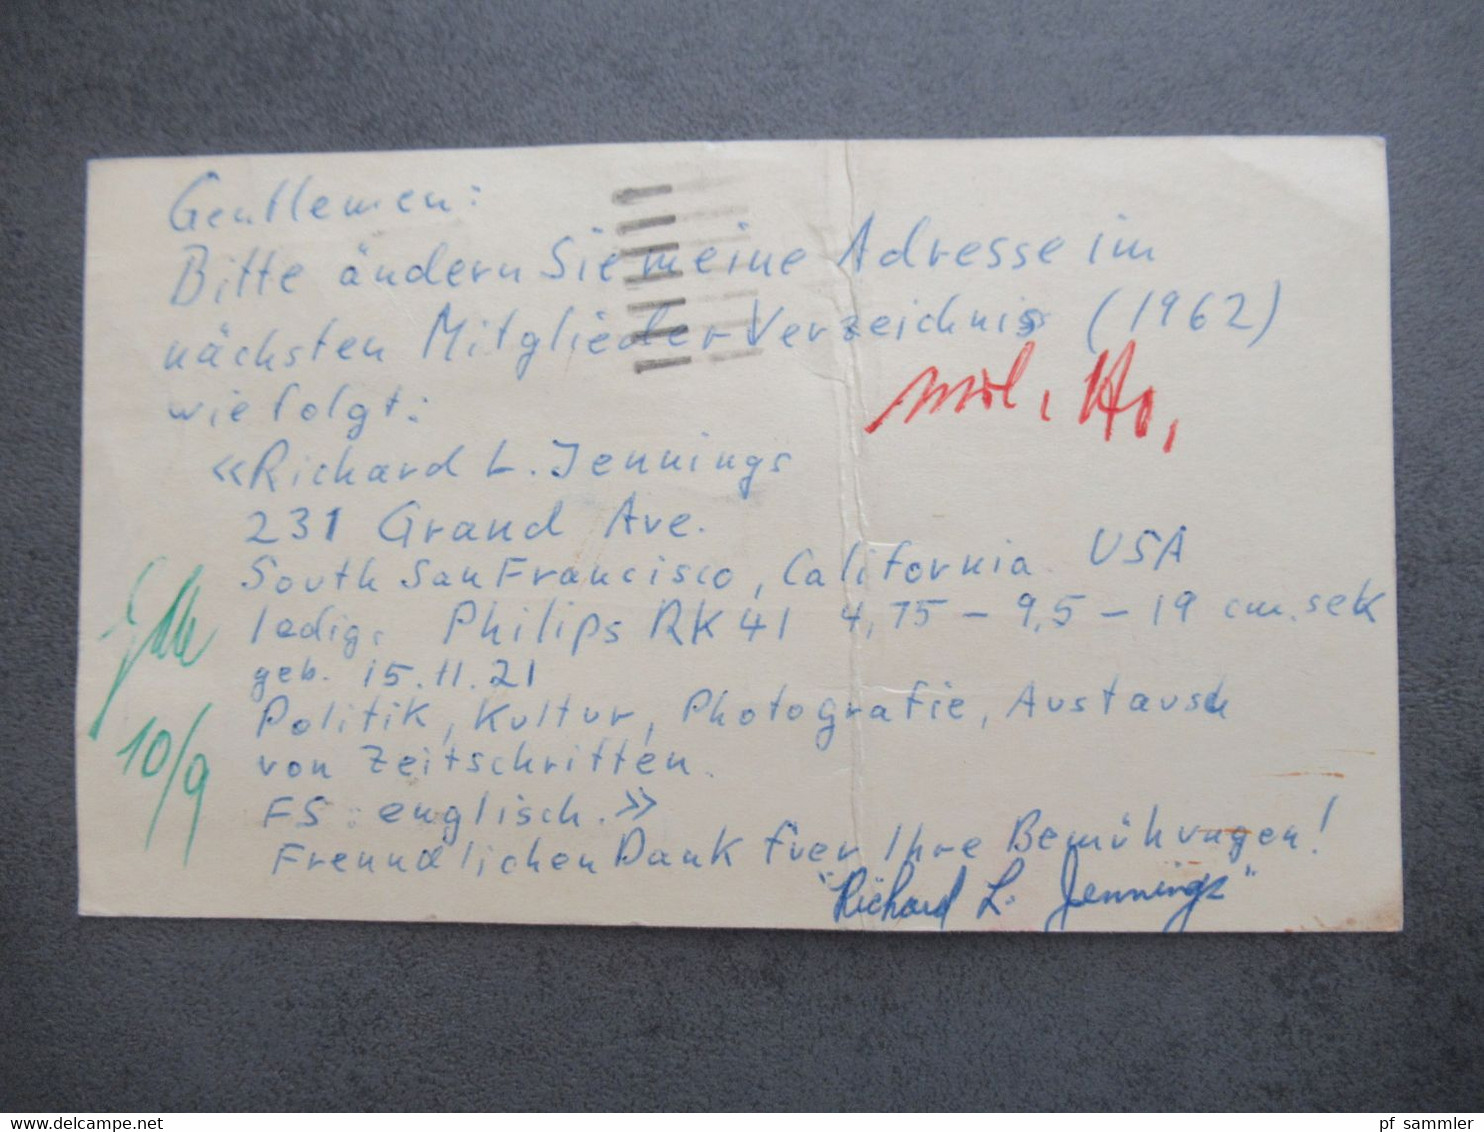 Gentlemen:
Bitte ändern Sie meine Adresse im
nächsten Mitglieder Verzeichnis (1962)
wie folgt:
«Richard L. Jennings
231 Grand Ave.
South San Francisco, California USA
ledig. Philips RK 41 4,75 – 9,5 – 19 cm.sek
geb. 15.11.21
Politik, Kultur, Photografie, Austausch
von Zeitschriften.
FS: englisch.»
Freundlichen Dank fuer Ihre Bemühungen!
"Richard L. Jennings"
10/9
www.delcampe.net
pf sammler